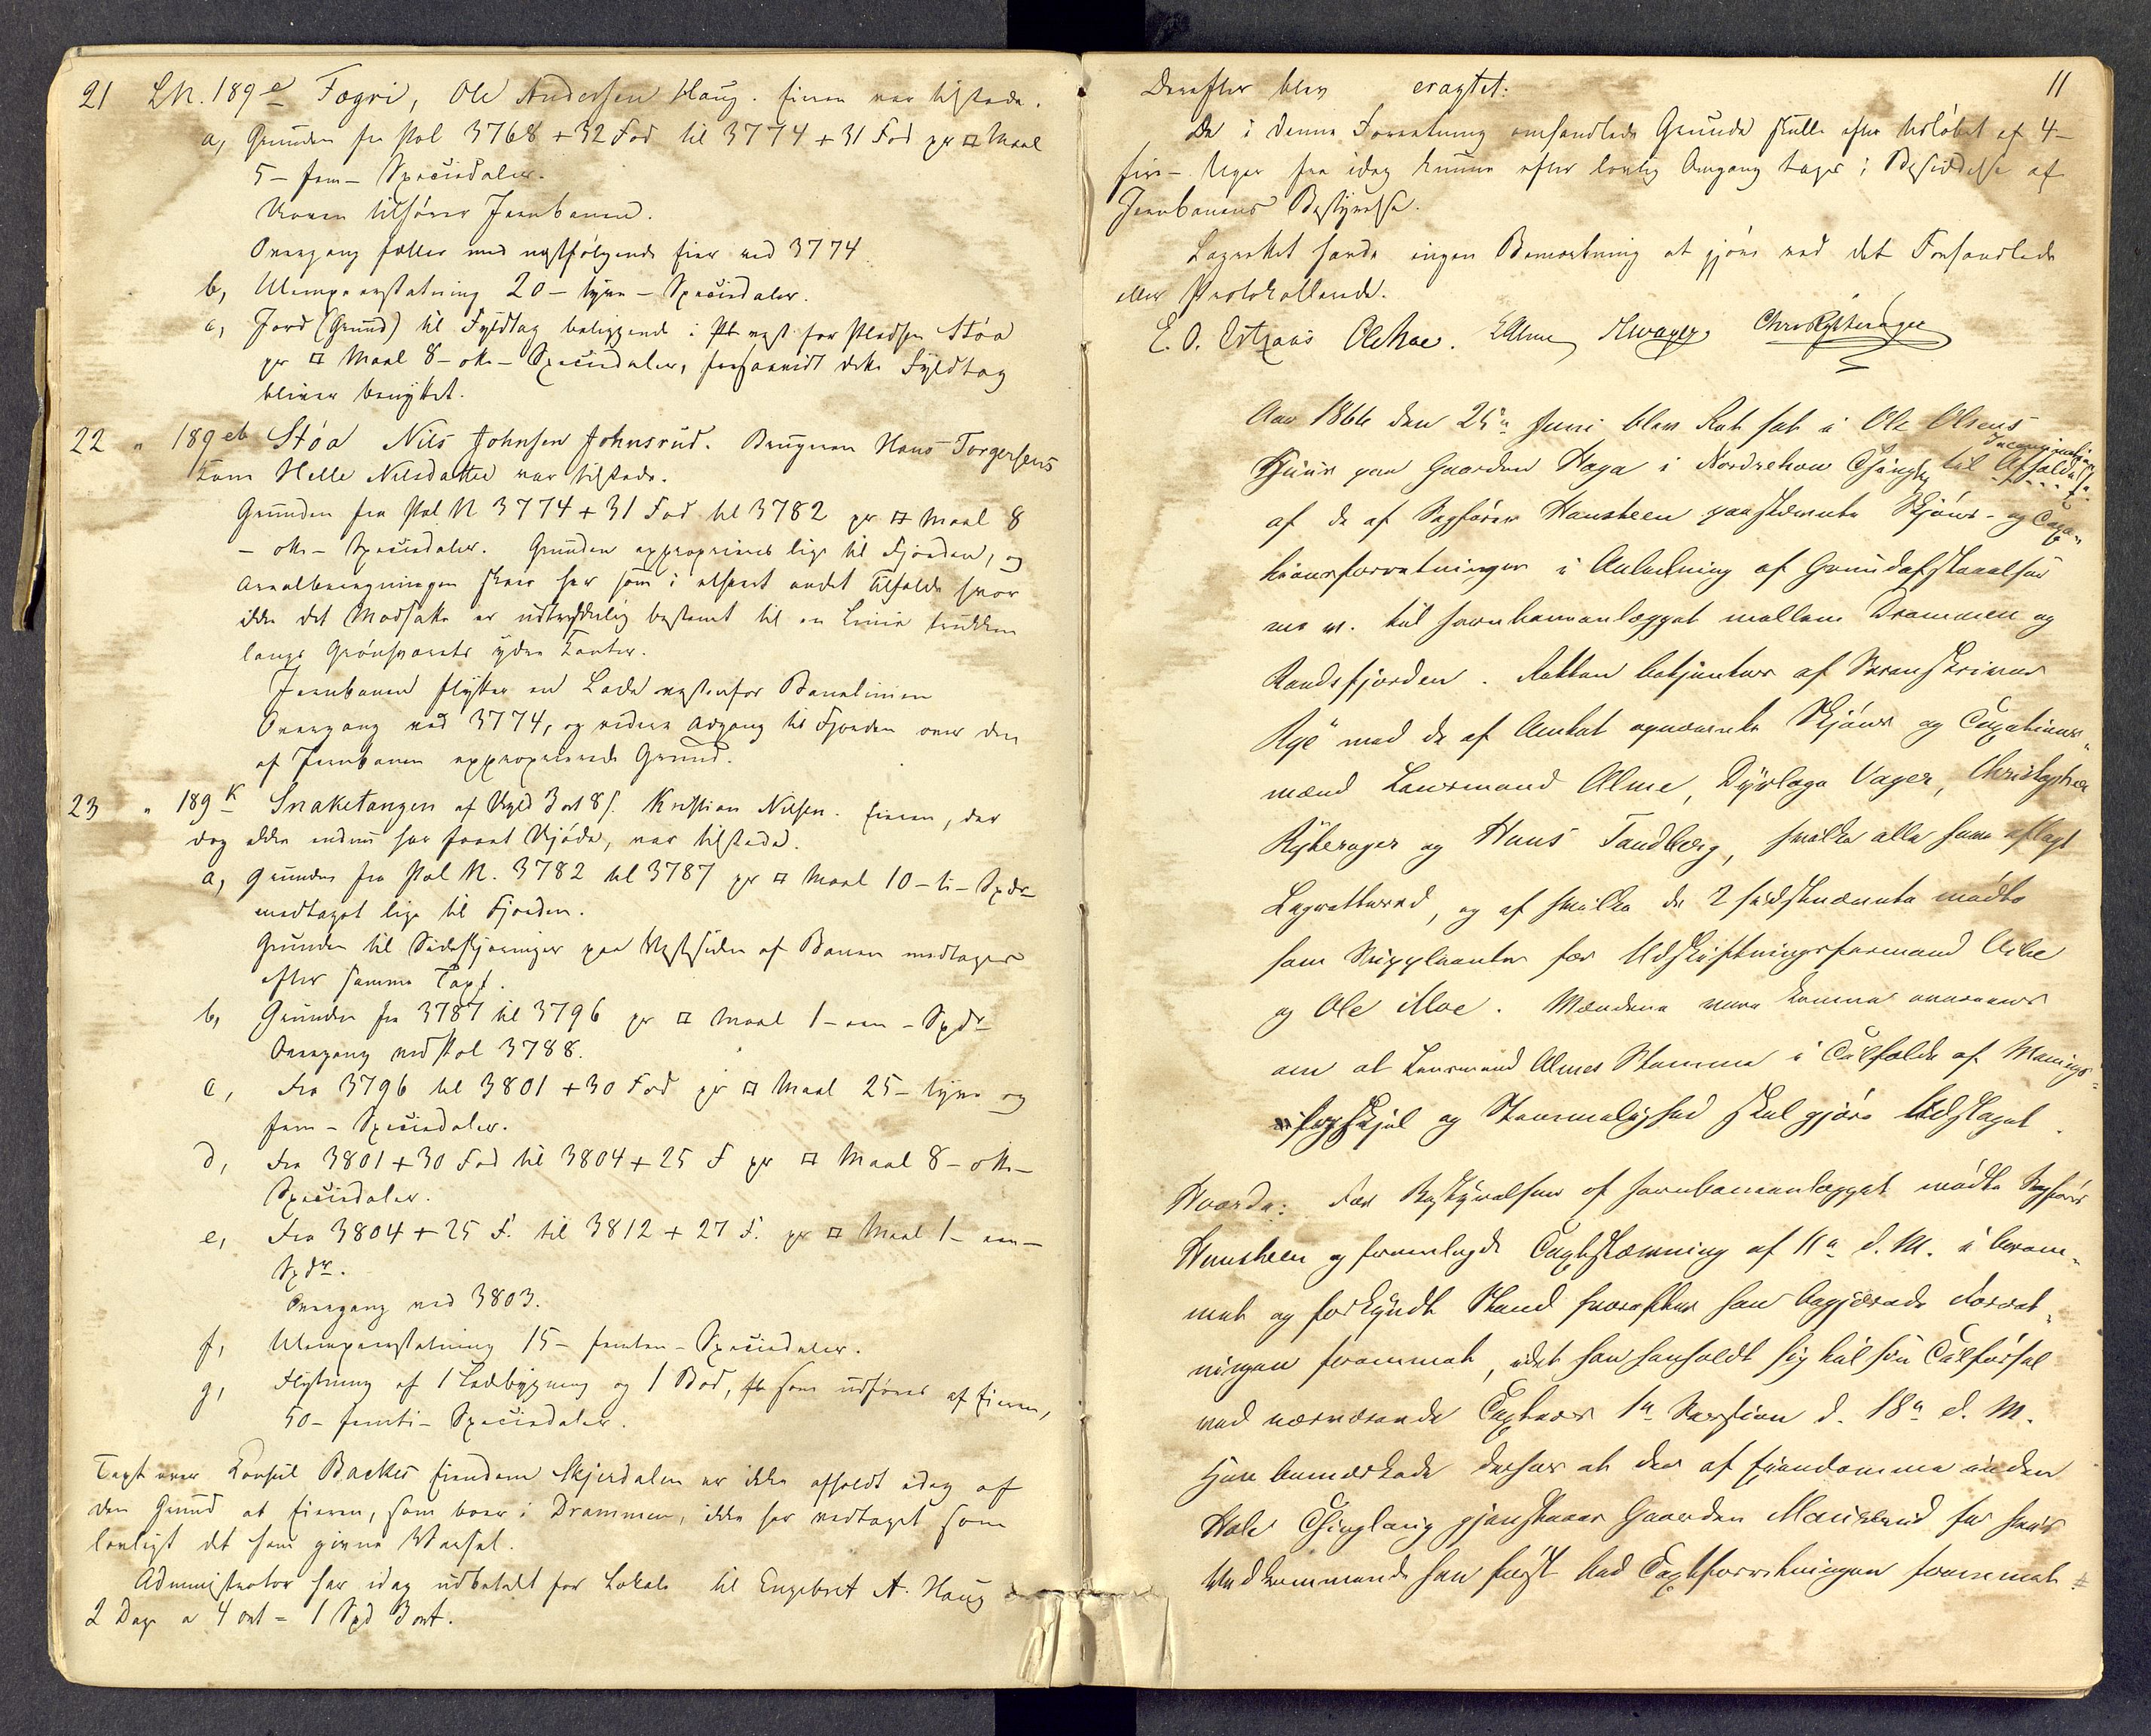 21 LN. 189e Fagri, Ole Andersen Haug. Eieren var tilstede.
a, Grunden fra Pæl 3768 + 32 Fod til 3774 + 31 Fod pr □ Maal
5 – fem – Speciedaler.
Veien tilhører Jernbanen.
Overgang fælles med nestfølgende Eier ved 3774
b, Ulempeerstatning 20 – tyve – Speciedaler.
c, Jord (Grund) til Fyldtag beliggende i vest for Pladsen Støa
pr □ Maal 8 – otte – Speciedaler, forsaavidt dette Fyldtag
bliver benyttet.
22 " 189eb Støa Nils Johnsen Johnsrud. Brugeren Hans Torgersens
Kone Helle Nilsdatter var tilstede.
Grunden fra Pæl N 3774 + 31 Fod til 3782 pr □ Maal 8
– otte – Speciedaler. Grunden exproprieres lige til Fjorden, og
Arealberegningen skeer her som i ethvert andet Tilfælde hvor
ikke det Modsatte er udtrykkelig bestemt til en Linie trukken
langs Grønsværets ydre Kanter.
Jernbanen flytter en Lade vestenfor Banelinien
Overgang ved 3774, og videre Adgang til Fjorden over den
af Jernbanen exproprierede Grund.
23 " 189k Snaketangen af Skyld 3 ort 8 s. Kristian Nilsen. Eieren, der
dog ikke endnu har faaet Skjøde, var tilstede.
a, Grunden fra Pæl N. 3782 til 3787 pr □ Maal 10 – ti – Spdr
medtaget lige til Fjorden.
Grunden til Sideskjæringer paa Vestsiden af Banen medtages
efter samme Taxt.
b, Grunden fra 3787 til 3796 pr □ Maal 1 – een – Spdr
Overgang ved Pæl 3788.
c, Fra 3796 til 3801 + 30 Fod pr □ Maal 25 – tyve og
fem – Speciedaler.
d, Fra 3801 + 30 Fod til 3804 + 25 F pr □ Maal 8 – otte –
Speciedaler.
e, Fra 3804 + 25 F. til 3812 + 27 F. pr □ Maal 1 – een –
Spdr.
Overgang ved 3803.
f, Ulempeerstatning 15 – femten – Speciedaler.
g, Flytning af 1 Ladebygning og 1 Bod, som udføres af Eieren,
50 – femti – Speciedaler.
Taxt over Konsul Backes Eiendom Skjerdalen er ikke afholdt idag af
den Grund at Eieren, som boer i Drammen, ikke har vedtaget som
lovligt det ham givne Varsel.
Administrator har idag udbetalt for Lokale til Engebret A. Haug
2 Dage a 4 ort = 1 Spd 3 ort.
11
Derefter blev eragtet:
De i denne Forretning omhandlede Grunde skulle efter Udløbet af 4 –
fire – Uger fra idag kunne efter lovlig Omgang tages i Besiddelse af
Jernbanens Bestyrelse.
Lagrettet havde ingen Bemærkning at gjøre ved det Forhandlede
eller Protokollerede.
E. O. Ole Moe. Alme Chr Rytterager
Aar 1866 den 25de Juni blev Ret sat i Ole Olsens
Huus paa Gaarden Haga i Norderhov Thinglag til Afholdelse
af de af Sagfører Hansteen paastævnte Skjøns- og Taxa-
tionsforretninger i Anledning af Grundafstaaelser
m. m. til Jernbaneanlægget mellem Drammen og
Randsfjorden. Retten betjentes af Sorenskriver
Rye med de af Amtet opnævnte Skjøns og Taxations-
mænd Lensmand Alme, Dyrlæge Vager, Christopher
Rytterager og Hans Tandberg, hvilke alle have aflagt
Lagrettesed, og af hvilke de 2 sidstnævnte mødte
som Suppleanter for Udskiftningsformand Viker
og Ole Moe. Mændene vare komne overeens
om at Lensmand Almes Stemme i Tilfælde af Menings-
forskjel og Stemmelighed skal gjøre Udslaget.
Hvorda: For Bestyrelsen af Jernbaneanlægget mødte Sagfører
Hansteen og fremlagde Taxtstævning af 11te d. M. i beram-
met og forkyndt Stand hvorefter han begjærede Forret-
ningen fremmet, idet han henholdt sig til sin Tilførsel
ved nærværende Taxtes 1ste Session d. 18de d. M.
Han bemærkede derhos at der af Eiendomme under
Hole Thinglaug gjenstaaer Gaarden for hvis
Vedkommende han Taxtforretningen fremmet